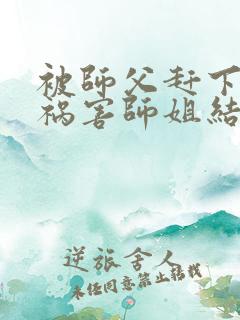 被師父赶下
祸害師姐結
逆旅舍人
未经同意禁止转载